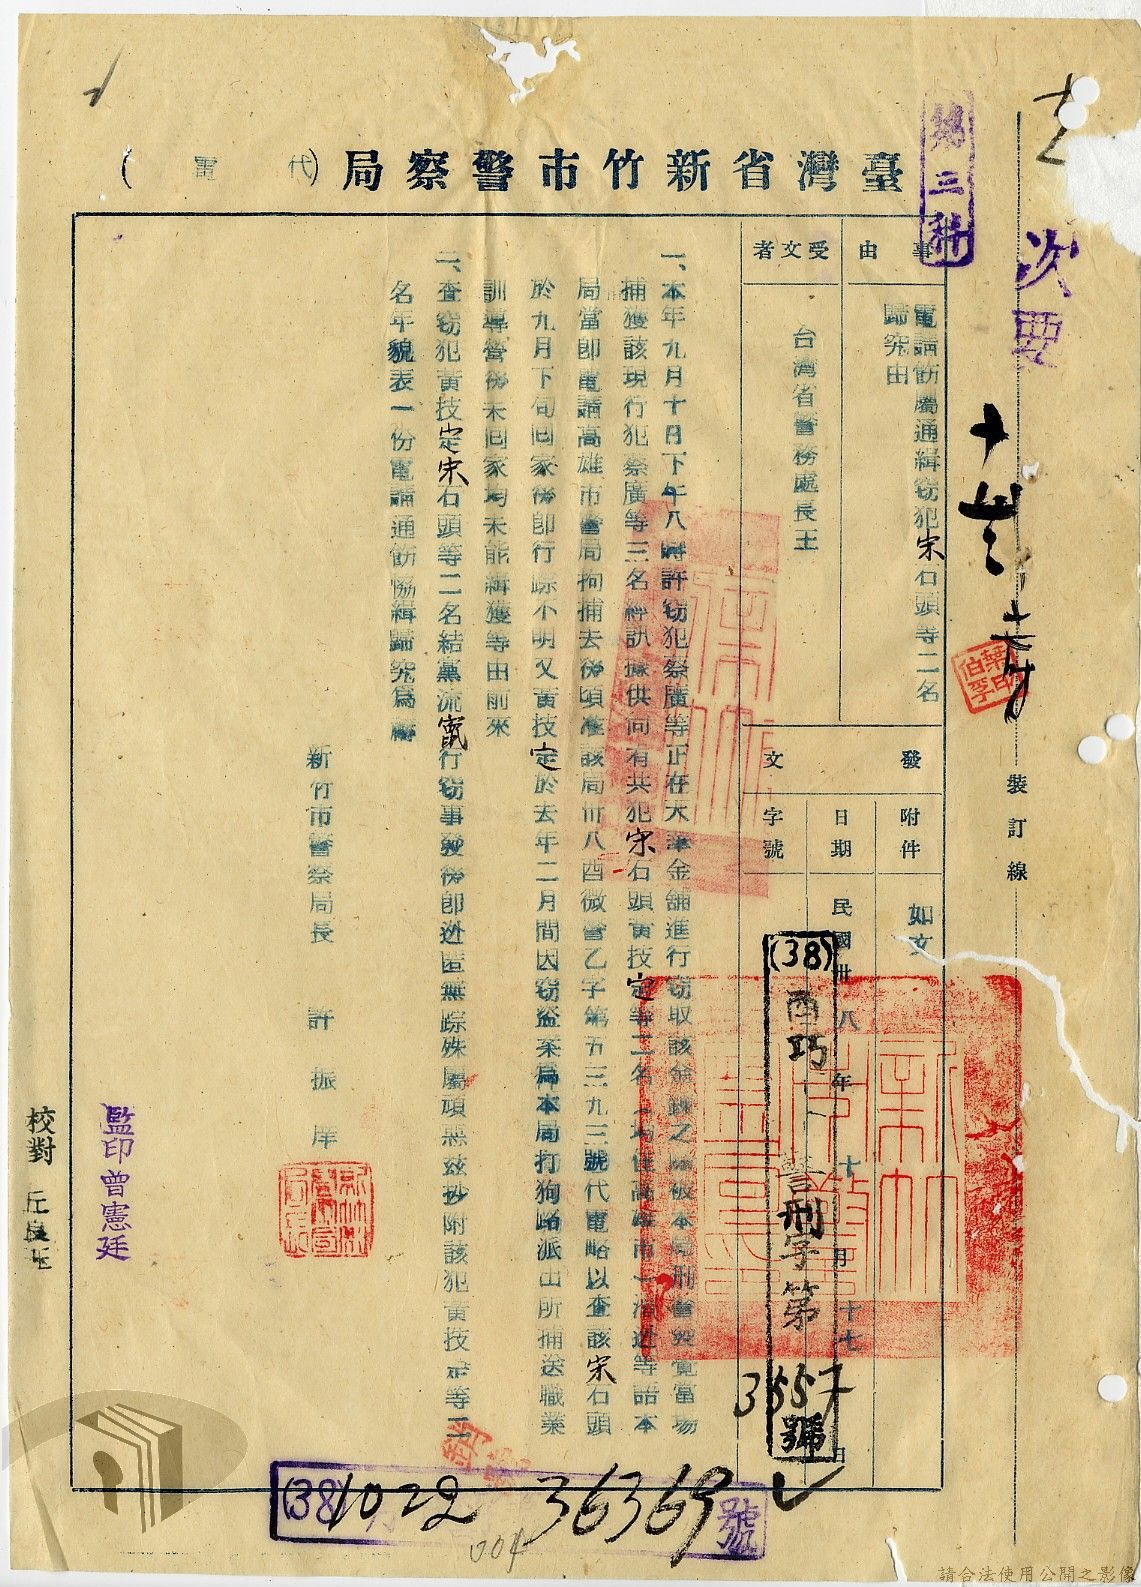 第三科
次要
臺灣省新竹市警察局（代電）
事由
電請飭屬通緝窃犯宋石頭等二名
歸究由
受文者
台灣省警務處長王
發文
附件
如文
日期
民國卅八年十月十七日
字號
(38)酉巧警刑字第3557號
一、本年九月十日下午八時許窃犯蔡廣等正在天津金舖進行窃取該金錢之際被本局刑警發覺當場
捕獲該現行犯蔡廣等三名經訊據供尚有共犯宋石頭黃技定等二名（均住高雄市一帶近等語本
局當即電請高雄市警局拘捕去後頃准該局卅八酉微警乙字第五三九三號代電略以查該宋石頭
於九月下旬回家後即行踪不明又黃技定於去年二月間因窃盜案為本局打狗路派出所捕送職業
訓導營後未回家均未能緝獲等由前來
二、查窃犯黃技定宋石頭等二名結黨流竄行窃事發後即逃匿無踪殊屬頑惡茲抄附該犯黃技定等二
名年貌表一份電請通飭協緝歸究為禱
新竹市警察局長 許振庠
裝訂線
監印曾憲廷
校對
(38)1022 36369號
004
請合法使用公開之影像